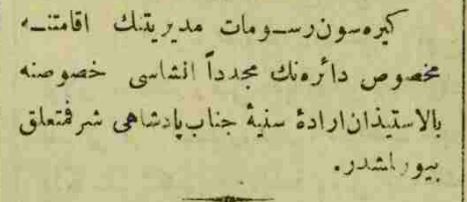 كيره‌سون رسومات مديريتنك اقامتنه
مخصوص دائره‌نك مجدداً انشاسى خصوصنه
بالاستيذان ارادۀ سنيۀ جناب پادشاهى شرفمتعلق
بيورلمشدر.